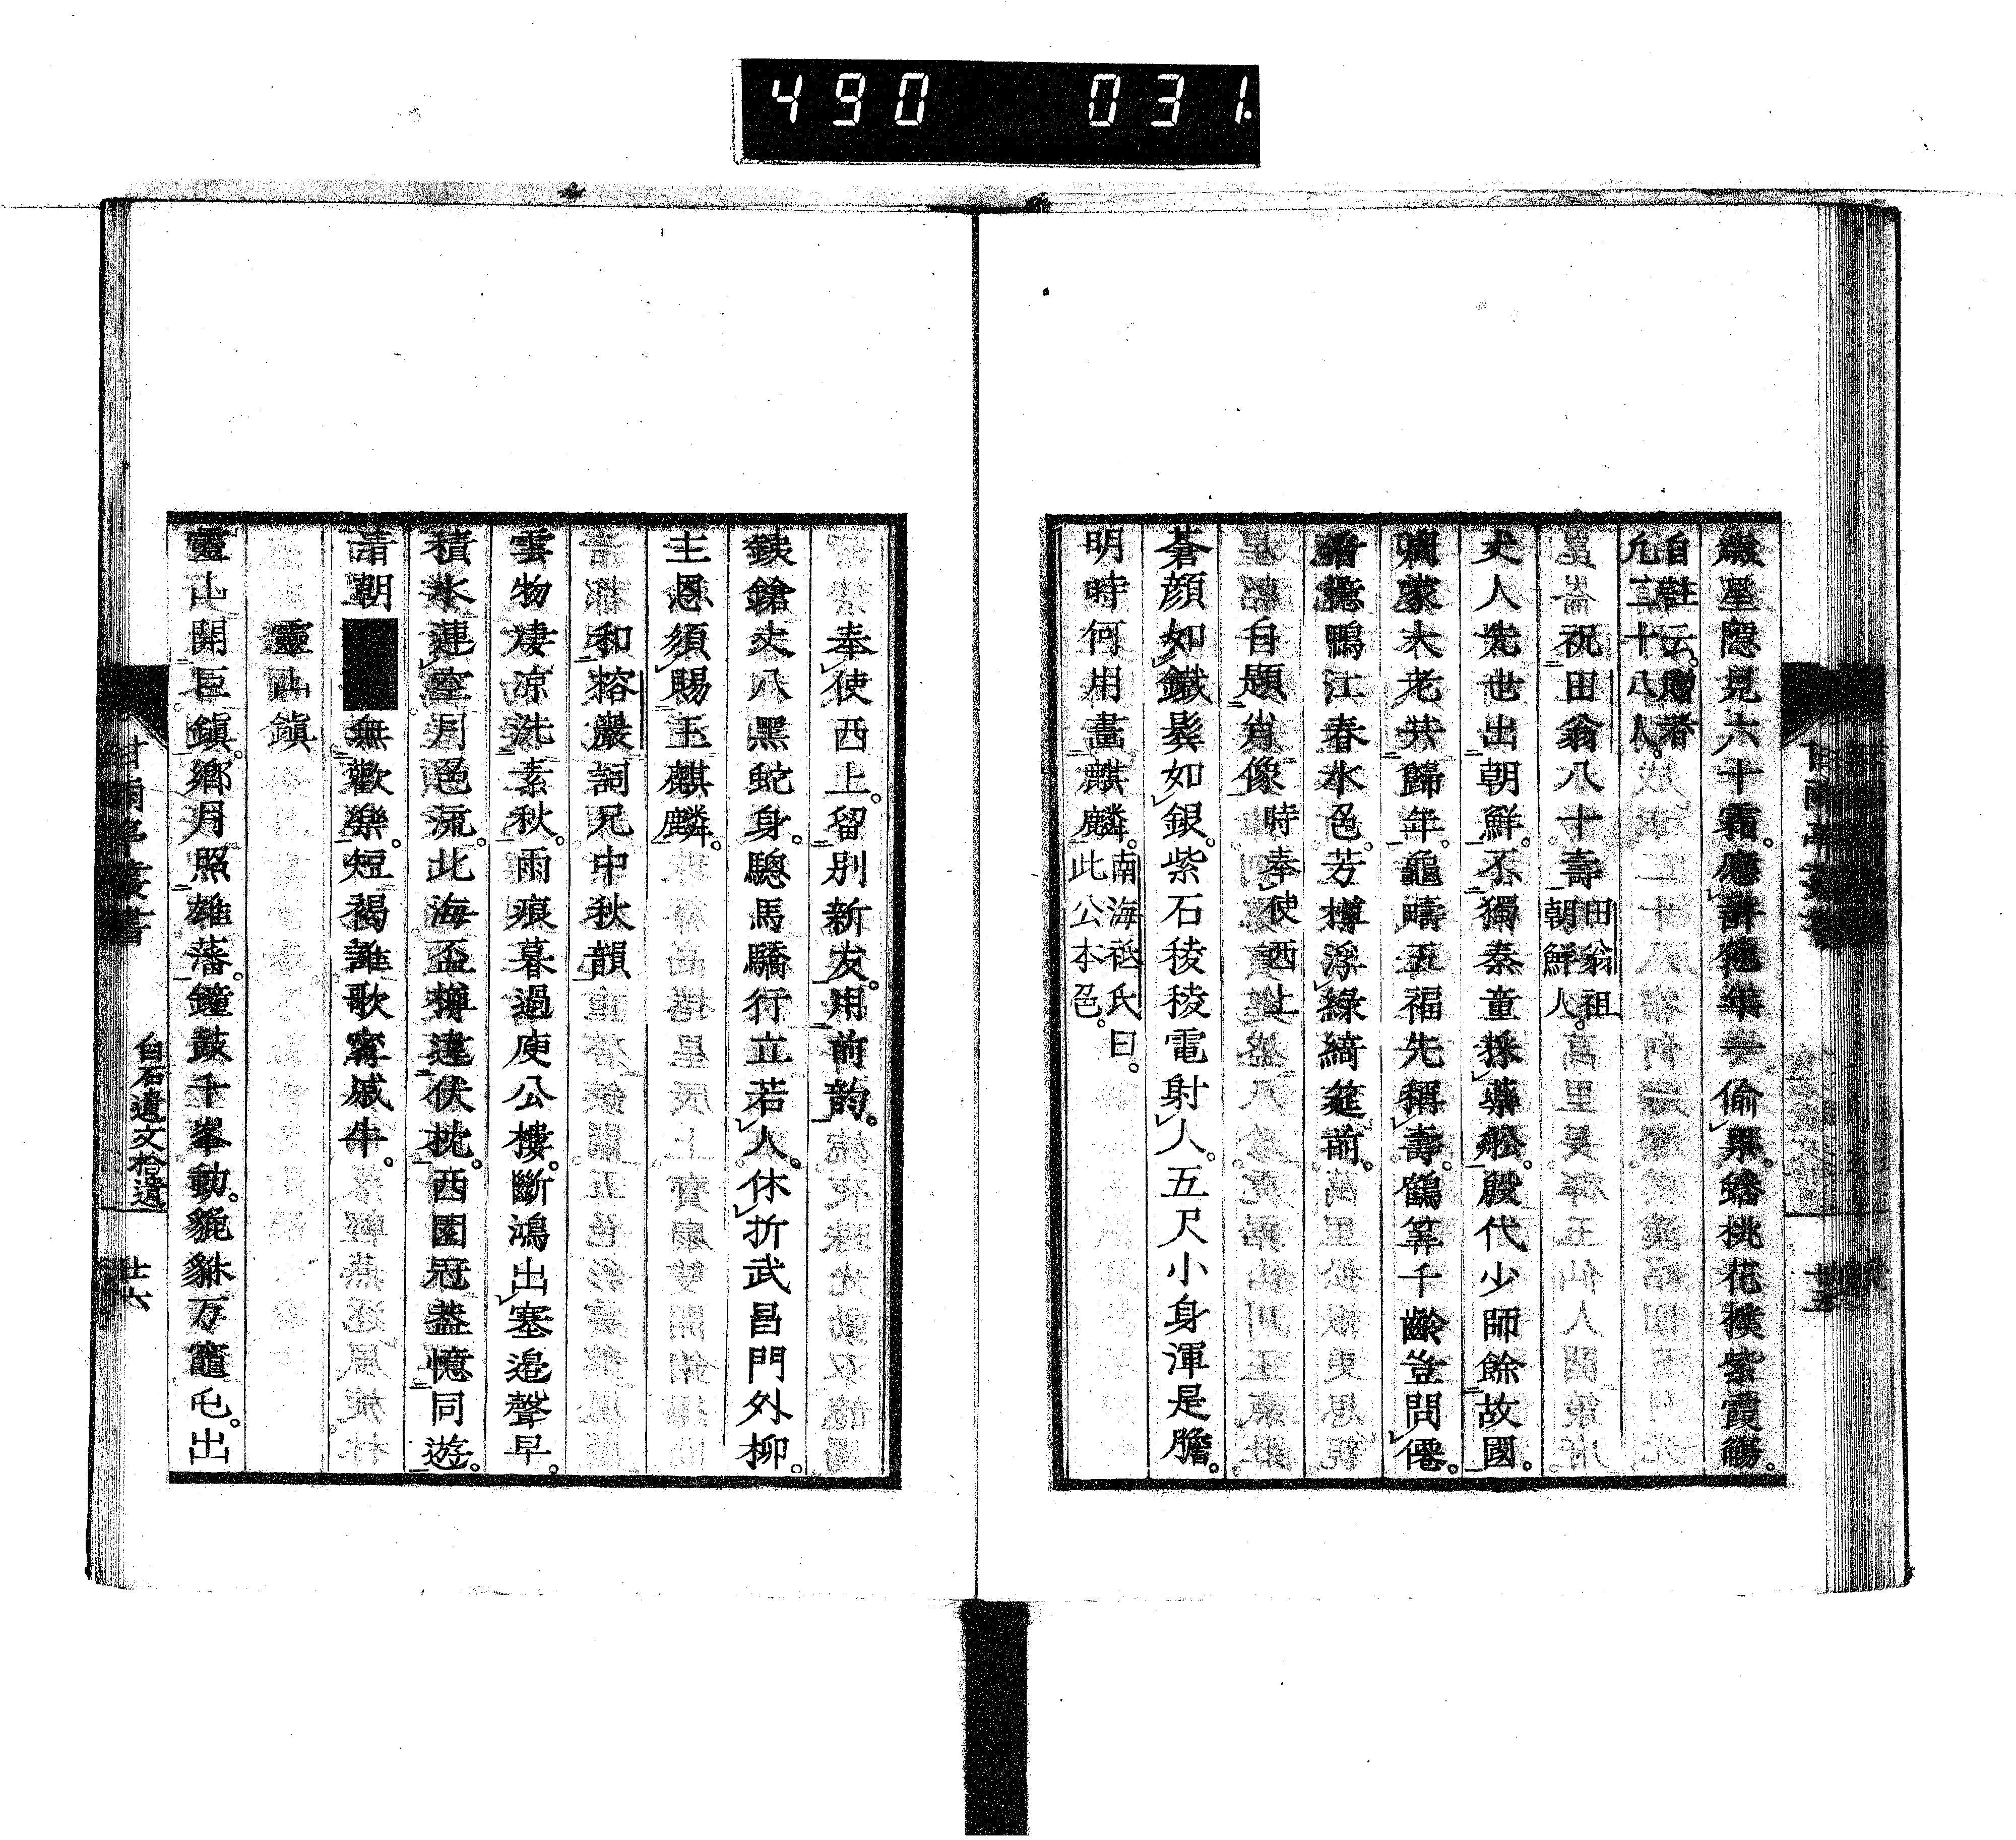 490 031
歲星隱見六十霜。應許他年一偷果。蟠桃花撲紫霞觴。
自註云。贈者
凡三十八人。
祝田翁八十壽 田翁祖
朝鮮人。
丈人先世出朝鮮。不獨秦童採藥船。殷代少師餘故國。
漢家大老共歸年。龜疇五福先稱壽。鶴筭千齡豈問僊。
憶鴨江春水色。芳樽浮綠綺筵前。
自題肖像 時奉使西上
蒼顏如鐵鬂如銀。紫石稜稜電射人。五尺小身渾是膽。
明時何用畫麒麟。 南海祗氏曰。
此公本色。
奉使西上。留別新友。用前韵。
鐵鎗丈八黑蛇身。驄馬驕行立若人。休折武昌門外柳。
主恩須賜玉麒麟。
和榕巖詞兄中秋韻
雲物凄凉洗素秋。雨痕暮過庾公樓。斷鴻出塞邉聲早。
積水連空月色流。北海盃樽違伏枕。西園冠蓋憶同遊。
清朝■無歡樂。短褐誰歌甯戚牛。
靈山鎭
靈山開巨鎭。鄉月照雄藩。鐘鼓千峯動。貔貅万竈屯。出
甘雨亭叢書
白石遺文拾遺
廿六